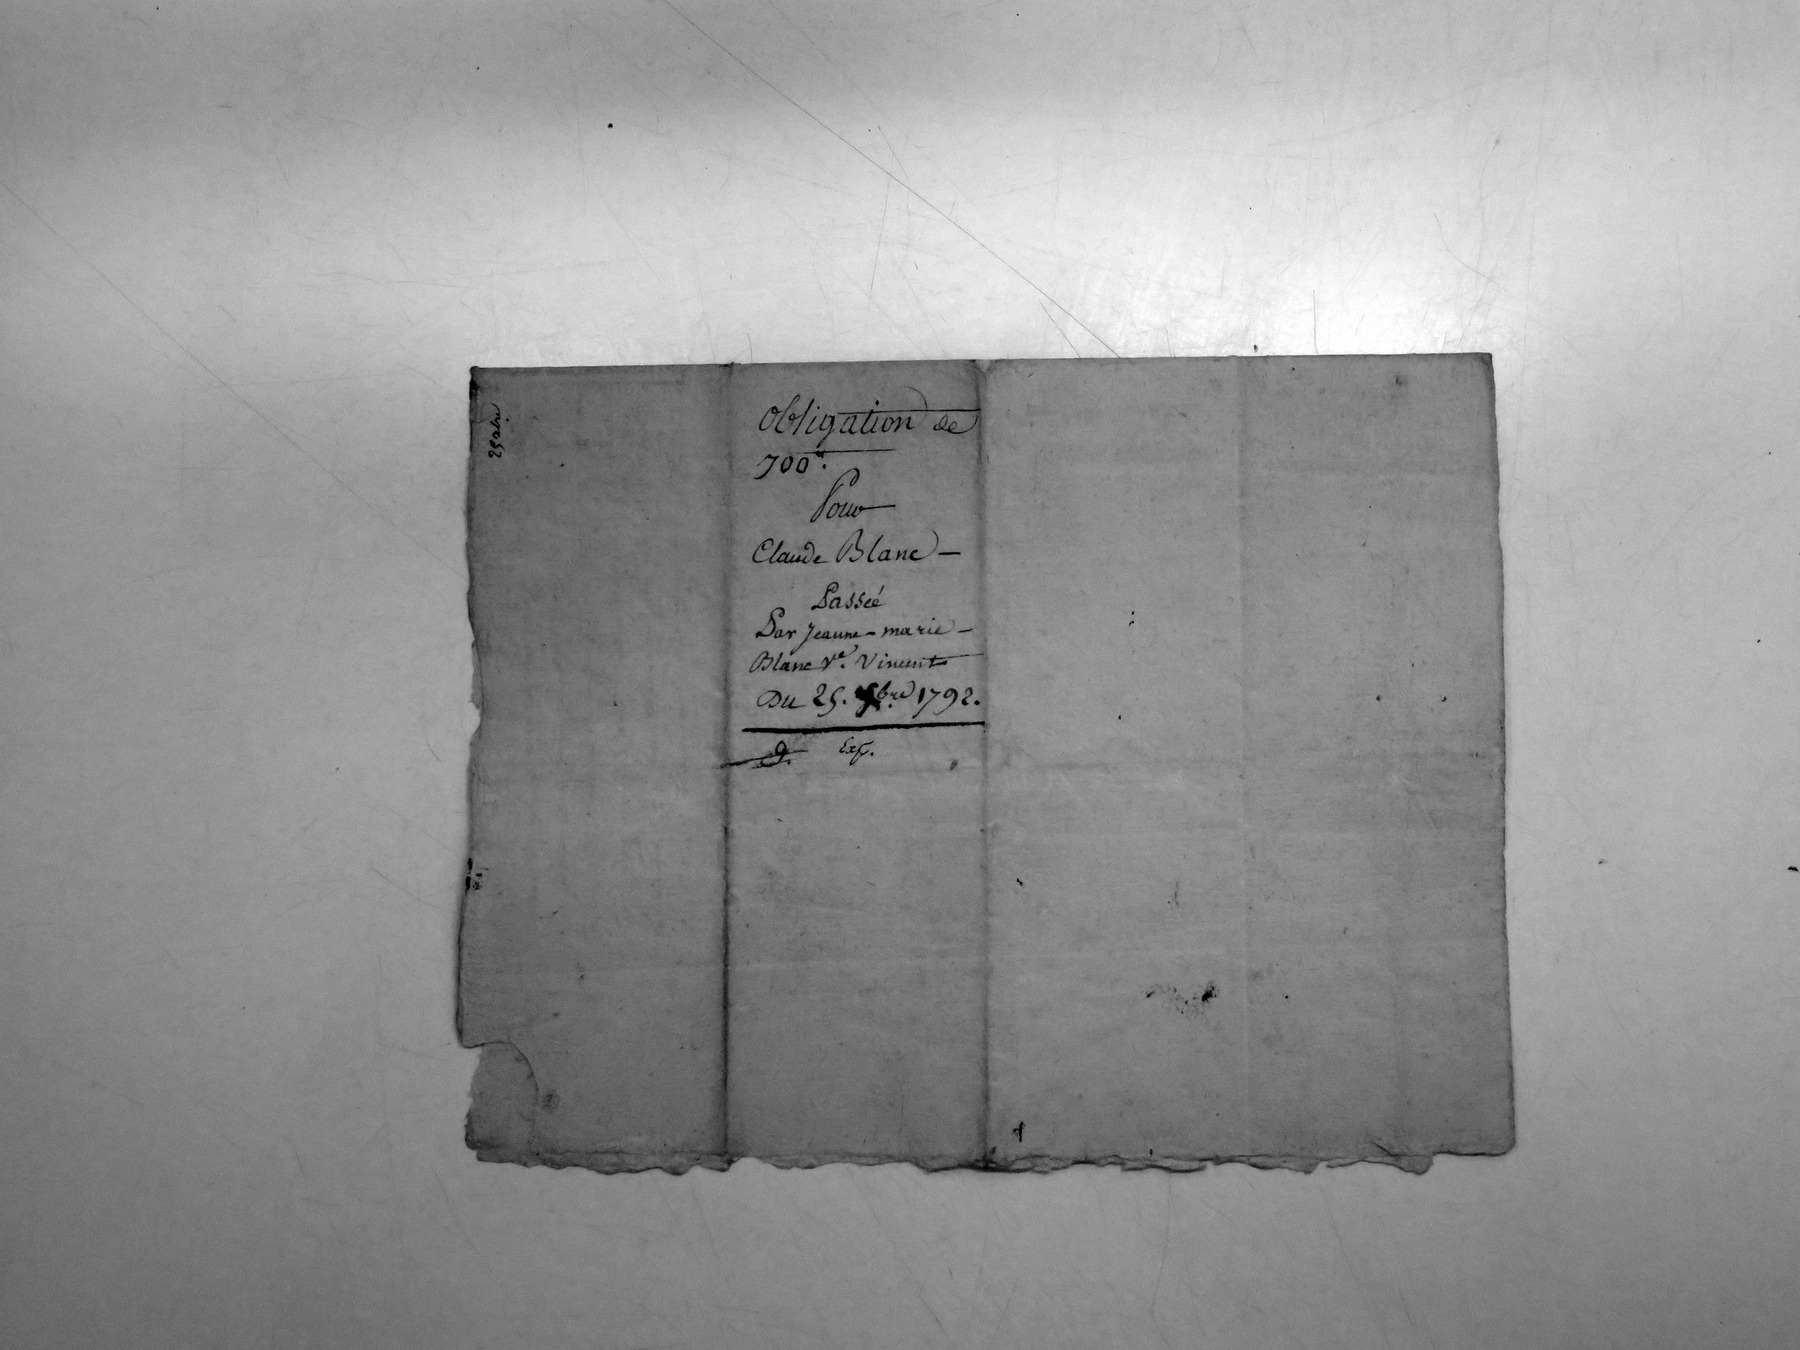 Obligation de
700tt.
Pour
Claude Blanc –
Passée
Par Jeanne – marie –
Blanc Ve. Vincent
Du 25. bre 1792.
9. Exp.